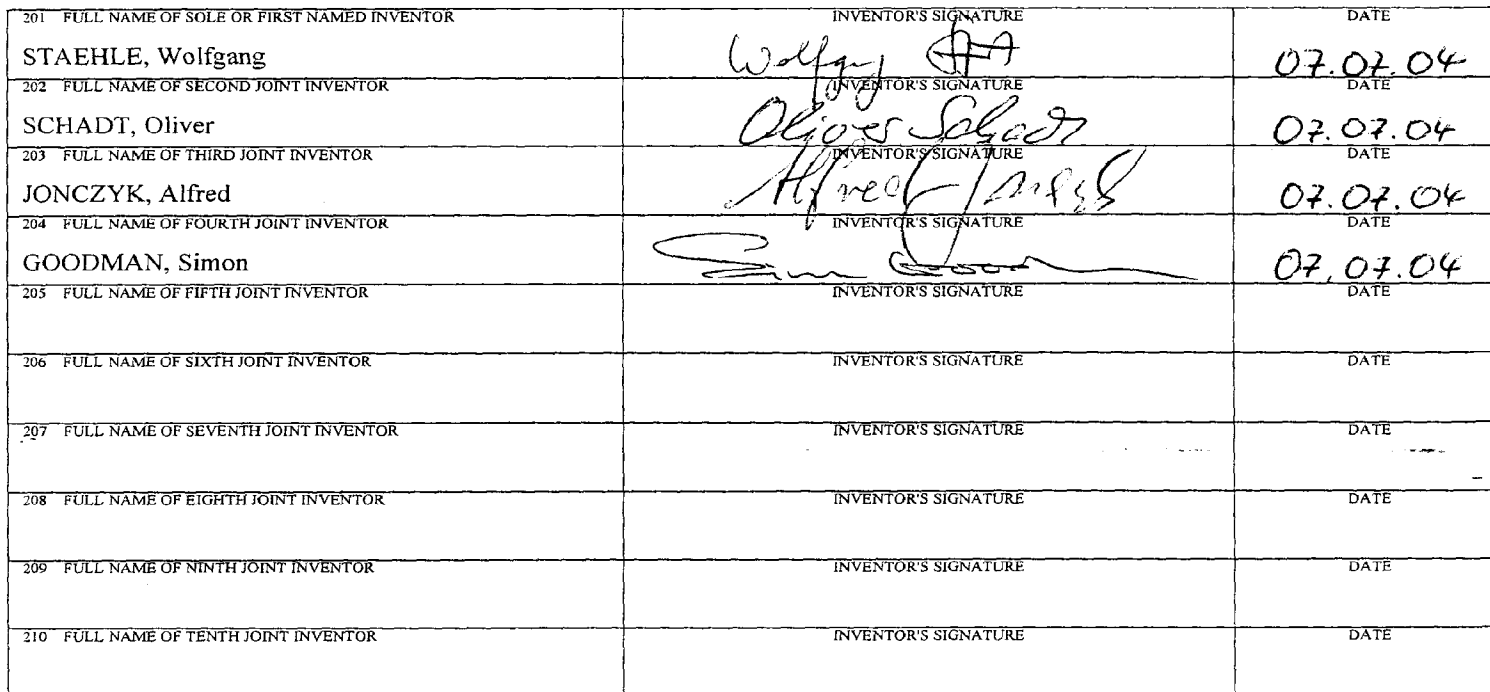 201 FULL NAME OF SOLE OR FIRST NAMED INVENTOR INVENTOR'S SIGNATURE DATE
STAEHLE, Wolfgang Wolfgang 07.07.04
202 FULL NAME OF SECOND JOINT INVENTOR INVENTOR'S SIGNATURE DATE
SCHADT, Oliver Oliver Schadt 07.07.04
203 FULL NAME OF THIRD JOINT INVENTOR INVENTOR'S SIGNATURE DATE
JONCZYK, Alfred Alfred 07.07.04
204 FULL NAME OF FOURTH JOINT INVENTOR INVENTOR'S SIGNATURE DATE
GOODMAN, Simon Simon 07.07.04
205 FULL NAME OF FIFTH JOINT INVENTOR INVENTOR'S SIGNATURE DATE
206 FULL NAME OF SIXTH JOINT INVENTOR INVENTOR'S SIGNATURE DATE
207 FULL NAME OF SEVENTH JOINT INVENTOR INVENTOR'S SIGNATURE DATE
208 FULL NAME OF EIGHTH JOINT INVENTOR INVENTOR'S SIGNATURE DATE
209 FULL NAME OF NINTH JOINT INVENTOR INVENTOR'S SIGNATURE DATE
210 FULL NAME OF TENTH JOINT INVENTOR INVENTOR'S SIGNATURE DATE